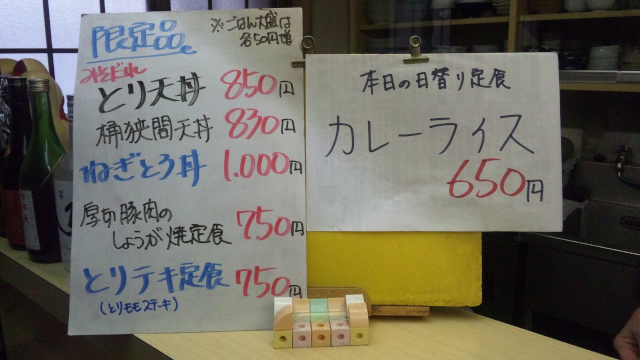 限定品。
※ごはん大盛は
各50円増
みそだれ
とり天丼 850円
桶狭間天丼 830円
ねぎとろ丼 1.000円
厚切豚肉の
しょうが焼定食 750円
とりテキ定食 750円
(とりモモステーキ)
本日の日替り定食
カレーライス
650円